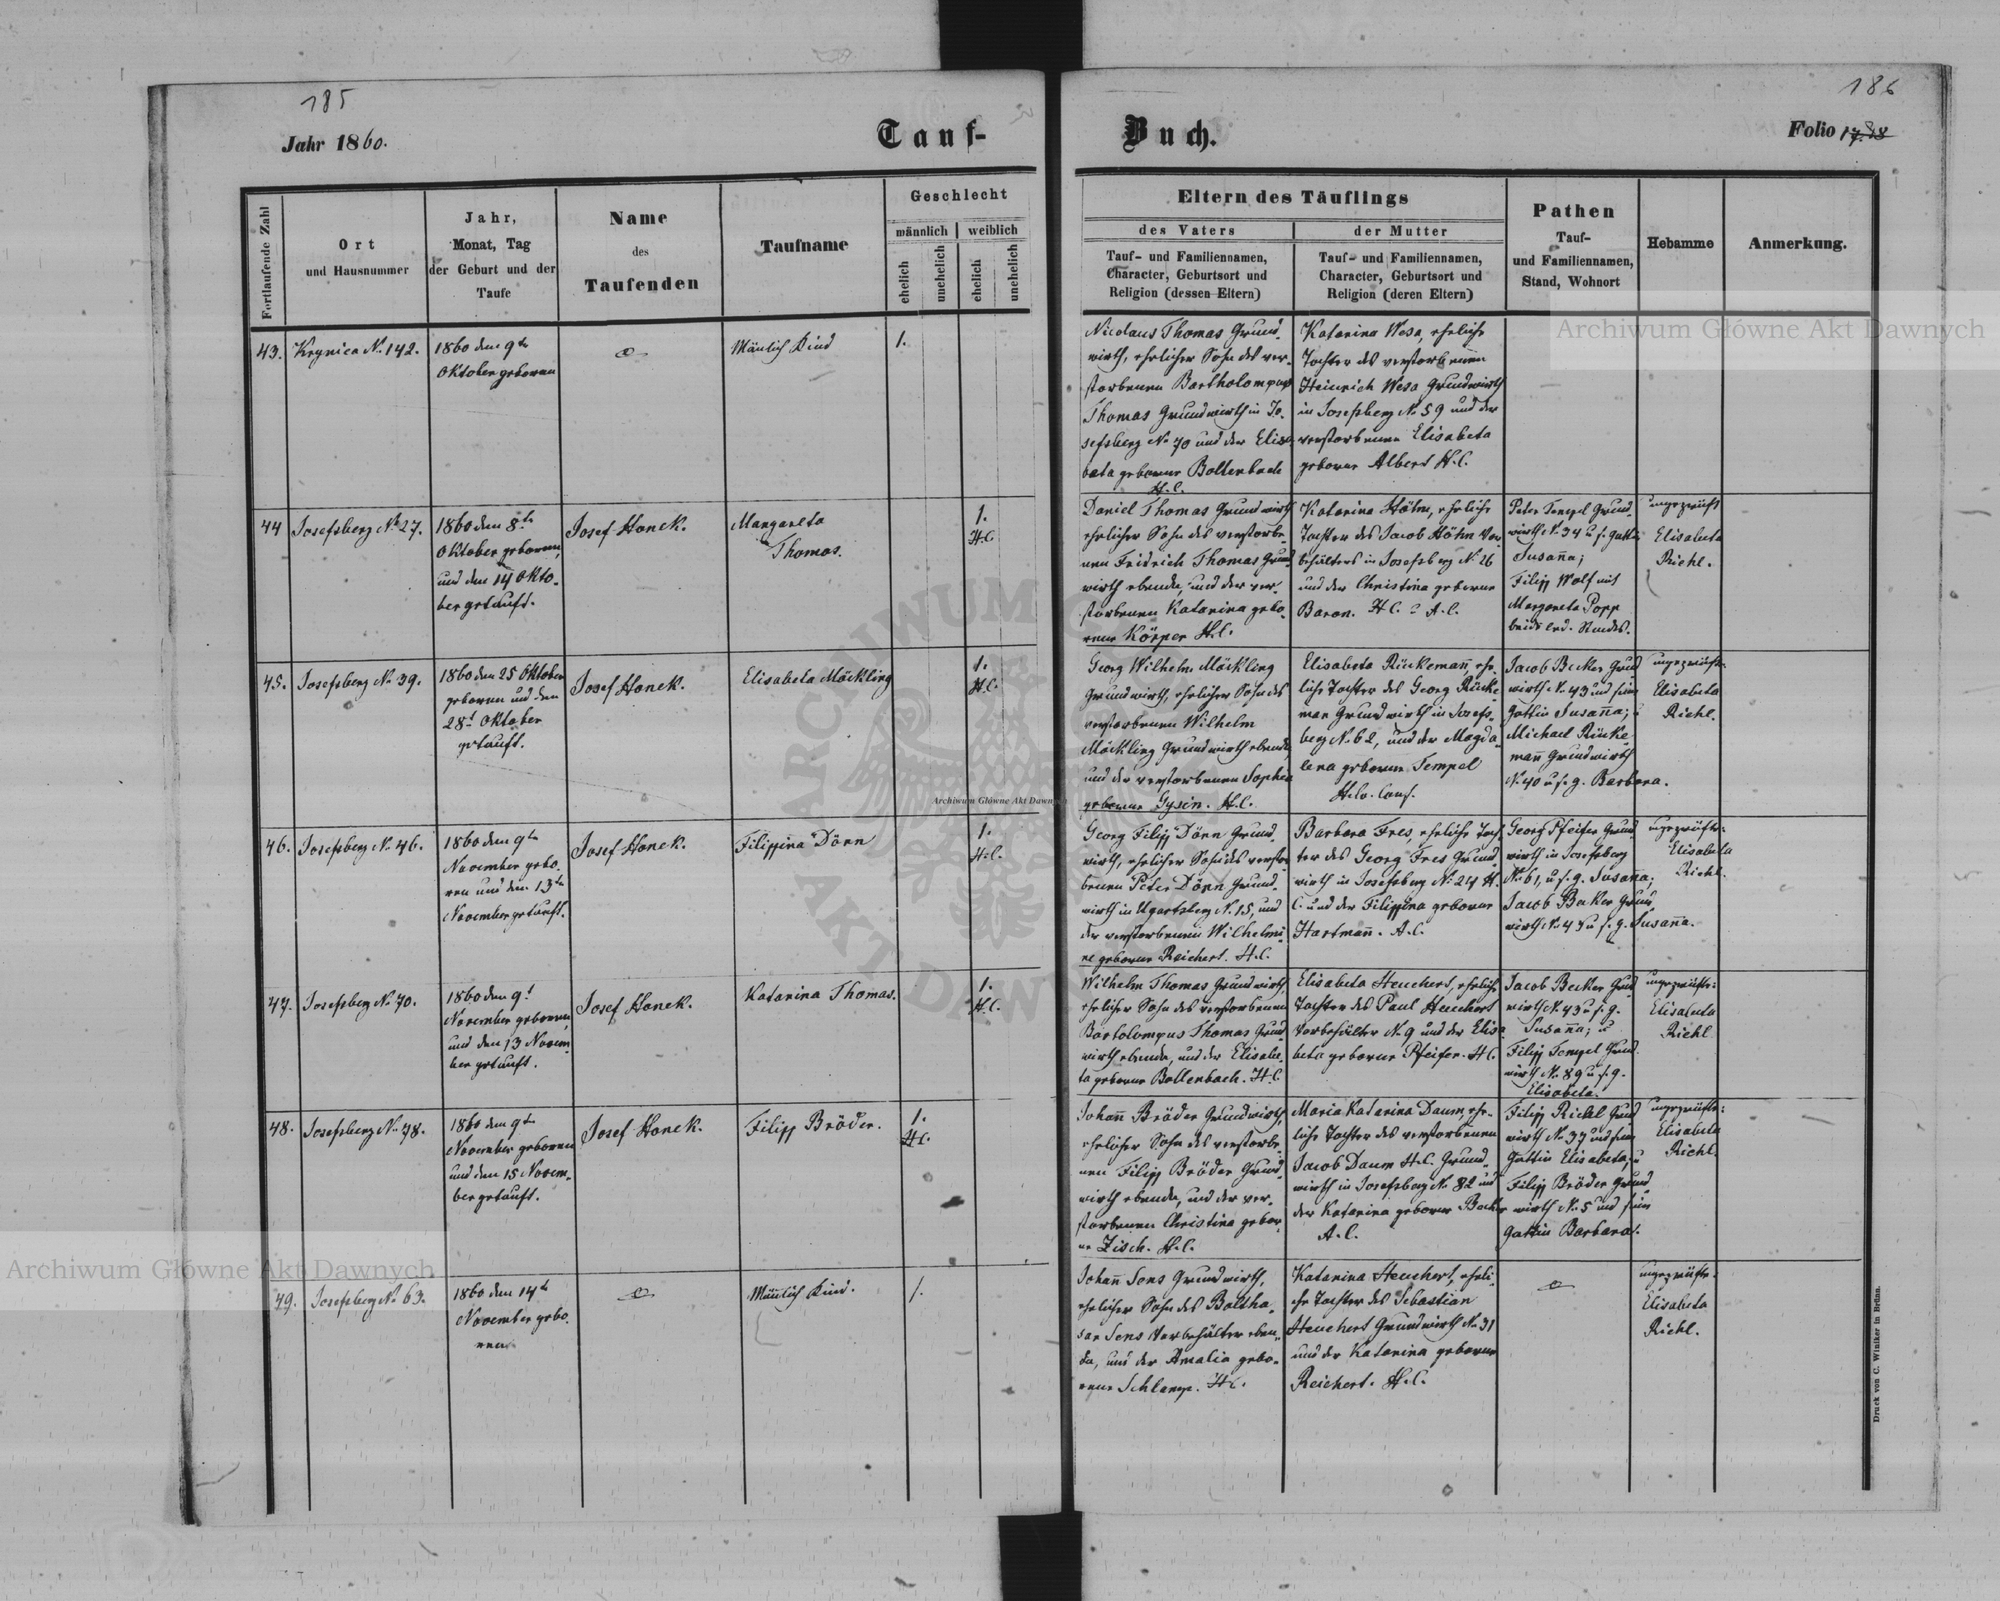 185
186
Jahr 1860.
Tauf-
Buch.
Folio 17.18
Fortlaufende Zahl
Ort
und Hausnummer
Jahr,
Monat, Tag
der Geburt und der
Taufe
Name
des
Taufenden
Taufname
Geschlecht
männlich
weiblich
ehelich
unehelich
ehelich
unehelich
Eltern des Täuflings
des Vaters
der Mutter
Tauf- und Familiennamen,
Character, Geburtsort und
Religion (dessen Eltern)
Tauf- und Familiennamen,
Character, Geburtsort und
Religion (deren Eltern)
Pathen
Tauf-
und Familiennamen,
Stand, Wohnort
Hebamme
Anmerkung.
43.
Krynica No 142.
1860 den 9te
Oktober geboren
Mänlich Kind
1.
Nicolaus Thomas Grund-
wirth, ehelicher Sohn des ver-
storbenen Bartholompus
Thomas Grundwirth in Jo-
sefsberg No 70 und der Elisa-
beta geborene Bollenbach
H.C.
Katarina Wesa, eheliche
Tochter des verstorbenen
Heinrich Wesa Grundwirth
in Josefsberg No 59 und der
verstorbenen Elisabeta
geborne Albert H.C.
44
Josefsberg No 27.
1860 den 8te
Oktober geboren,
und den 14 Okto-
ber getauft.
Josef Honek.
Margareta
Thomas.
1.
H.C.
Daniel Thomas Grundwirth
ehelicher Sohn des verstorbe-
nen Fridrich Thomas Grund-
wirth ebenda, und der ver-
storbenen Katarina gebo-
rene Körper H.C.
Katarina Höhn, eheliche
Tochter des Jacob Höhn Vor-
behälters in Josefsberg No 26
und der Christina geborne
Baron. H.C. u A.C.
Peter Tempel Grund-
wirth No 34 u s. Gattin
Susaña;
Filipp Wolf mit
Margareta Popp
beide led. Standes.
ungeprüft
Elisabeta
Riehl.
45.
Josefsberg No 39.
1860 den 25 Oktober
geboren und den
28t Oktober
getauft.
Josef Honek.
Elisabeta Möckling
1.
H.C.
Georg Wilhelm Möckling
Grundwirth, ehelicher Sohn des
verstorbenen Wilhelm
Möckling Grundwirth ebenda,
und der verstorbenen Sophia
geborne Gysin. H.C.
Elisabeta Rückemañ, ehe-
liche Tochter des Georg Rücke-
man Grundwirth in Josefs-
berg No 62, und der Magda-
lena geborne Tempel
Helv. Conf.
Jacob Becker Grund-
wirth No 43 und seine
Gattin Susaña; u
Michael Rücke-
mañ Grundwirth
No 40 u s. g. Barbara.
ungeprüfte:
Elisabeta
Riehl.
46.
Josefsberg No 46.
1860 den 9te
November gebo-
ren und den 13te
November getauft.
Josef Honek.
Filippina Dörn
1.
H.C.
Georg Filipp Dörn Grund-
wirth, ehelicher Sohn des verstor-
benen Peter Dörn Grund-
wirth in Ugartsberg No 15, und
der verstorbenen Wilhelmi-
ne geborne Reichert. H.C.
Barbara Fres, eheliche Toch-
ter des Georg Fres Grund-
wirth in Josefsberg No 24 H.
C. und der Filippina geborne
Hartmañ. A.C.
Georg Pfeifer Grund-
wirth in Josefsberg
No 61, u s. g. Susaña;
Jacob Becker Grund-
wirth No 43 u s. g. Susaña.
ungeprüfte:
Elisabeta
Riehl.
47.
Josefsberg No 70.
1860 den 9t
November geboren,
und den 13 Novem-
ber getauft.
Josef Honek.
Katarina Thomas.
1.
H.C.
Wilhelm Thomas Grundwirth,
ehelicher Sohn des verstorbenen
Bartolompus Thomas Grund-
wirth ebenda, und der Elisabe-
ta geborne Bollenbach. H.C.
Elisabeta Heuchert, eheliche
Tochter des Paul Heuchert
Vorbehälter No 9 und der Elisa-
beta geborne Pfeifer. H.C.
Jacob Becker Grund-
wirth No 43 u s. g.
Susaña; u
Filipp Tempel Grund-
wirth No 89 u s. g.
Elisabeta.
ungeprüfte:
Elisabeta
Riehl
48.
Josefsberg No 78.
1860 den 9te
November geboren
und den 15 Novem-
ber getauft.
Josef Honek.
Filipp Bröder.
1.
H.C.
Johañ Bröder Grundwirth,
ehelicher Sohn des verstorbe-
nen Filipp Bröder Grund-
wirth ebenda, und der ver-
storbenen Christina gebor-
ne Zisch. H.C.
Maria Katarina Daum, ehe-
liche Tochter des verstorbenen
Jacob Daum H.C. Grund-
wirth in Josefsberg No 82 und
der Katarina geborne Becker
A.C.
Filipp Riehl Grund-
wirth No 37 und seine
Gattin Elisabeta, u
Filipp Bröder Grund-
wirth No 5 und seine
Gattin Barbara.
ungeprüfte:
Elisabeta
Riehl.
49.
Josefsberg No 63.
1860 den 14te
November gebo-
ren
Mänlich Kind.
1.
Johañ Sens Grundwirth,
ehelicher Sohn des Baltha-
sar Sens Vorbehälter eben-
da, und der Amalia gebo-
rene Schlamp. H.C.
Katarina Heuchert, eheli-
che Tochter des Sebastian
Heuchert Grundwirth No 31
und der Katarina geborne
Reichert. H.C.
ungeprüfte:
Elisabeta
Riehl.
Druck von C. Winiker in Brünn.
Archiwum Główne Akt Dawnych
Archiwum Główne Akt Dawnych
Archiwum Główne Akt Dawnych